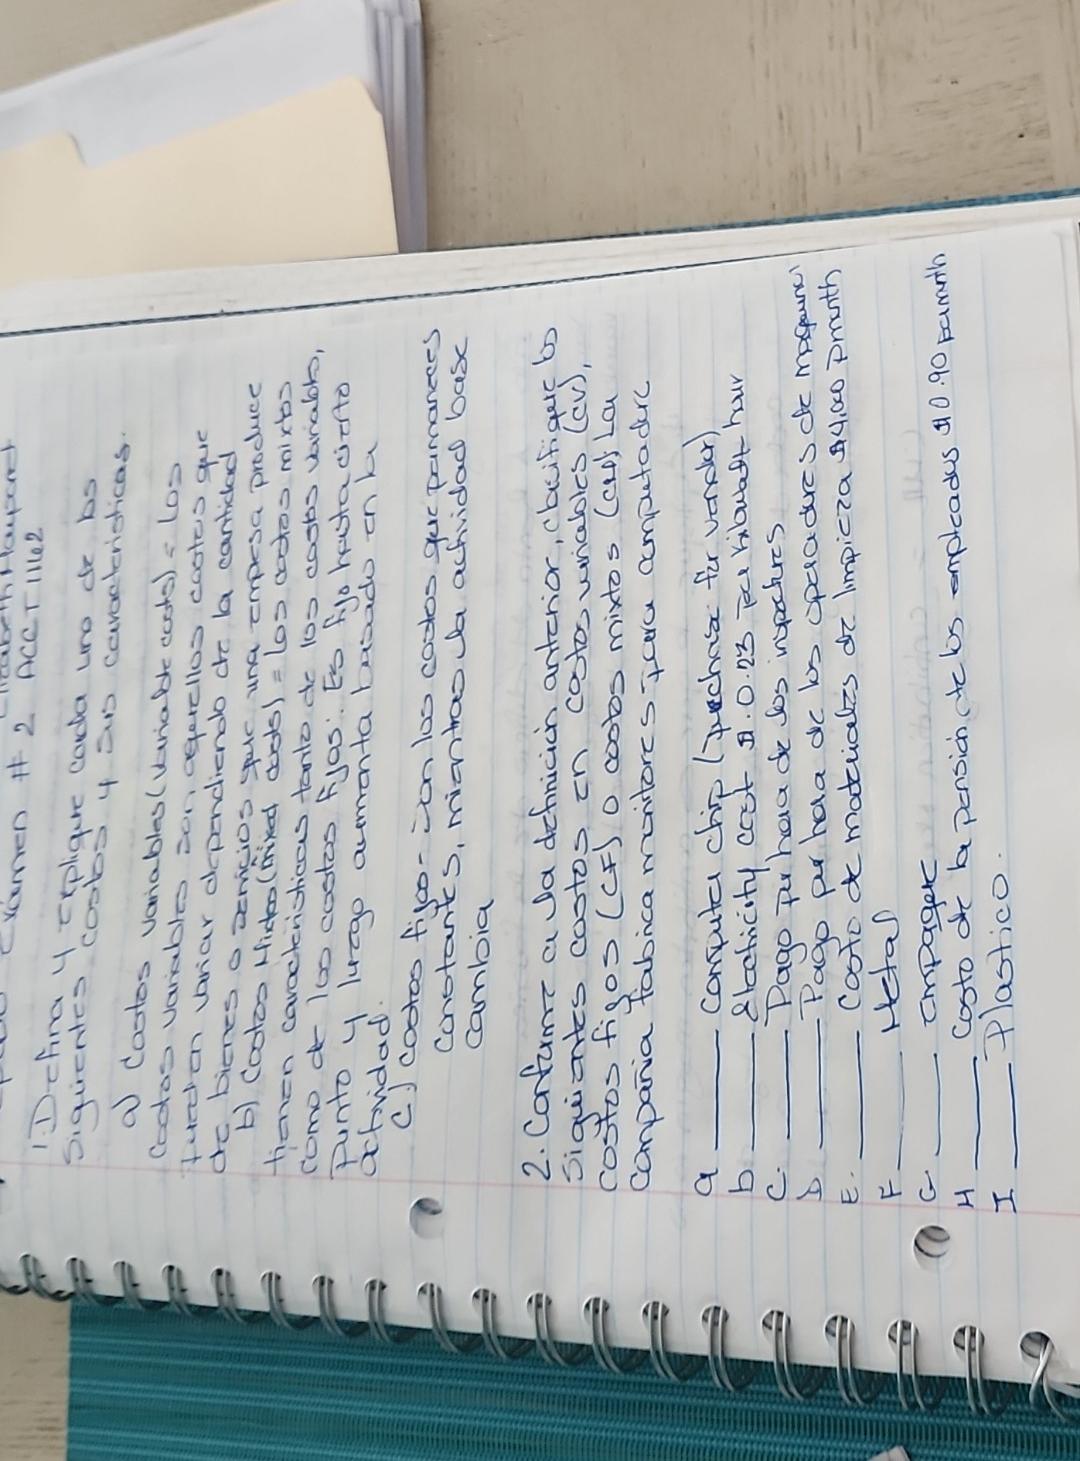 Examen # 2 ACCT 1162
1. Defina y explique cada uno de los
siguientes costos y sus características.
a) Costos variables (variable costs) = Los
costos variables son aquellos costos que
pueden variar dependiendo de la cantidad
de bienes o servicios que una empresa produce
b) Costos Mixtos (Mixed costs) = Los costos mixtos
tienen características tanto de los costos variables,
como de los costos fijos. Es fijo hasta cierto
punto y luego aumenta basado en la
actividad.
c.) Costos fijos - Son los costos que permaneces
constantes, mientras la actividad base
cambia
2. Conforme a la definición anterior, clasifique los
siguientes costos en costos variables (CV),
costos fijos (CF) o costos mixtos (CM) La
compañia fabrica monitores para computadora
a ____ Computer chip (purchase for vendor)
b ____ Electricity cost $.0.23 per kilowatt hour
C. ____ Pago por hora de los
D ____ Pago por hora de los operadores de
E. ____ Costo de materiales de limpieza $4,000 p month
F ____ Metal
G ____ empaque
H ____ Costo de la pensión de los empleados $0.90 per month
I ____ Plastico.